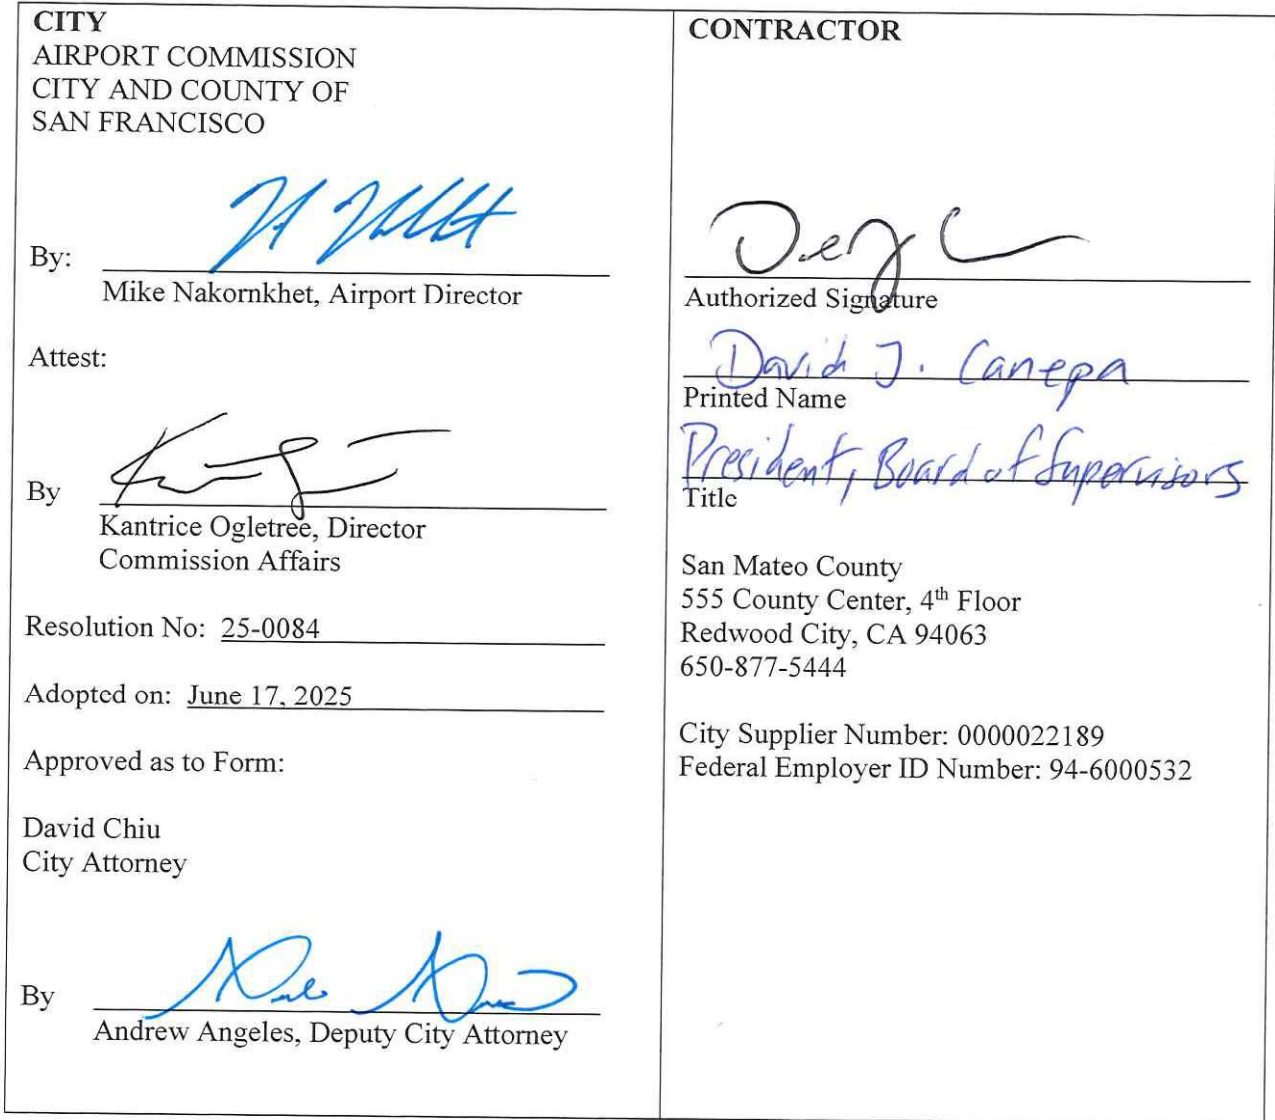 CITY
AIRPORT COMMISSION
CITY AND COUNTY OF
SAN FRANCISCO
By:
Mike Nakornkhet, Airport Director
Attest:
By
Kantrice Ogletree, Director
Commission Affairs
Resolution No: 25-0084
Adopted on: June 17, 2025
Approved as to Form:
David Chiu
City Attorney
By
Andrew Angeles, Deputy City Attorney
CONTRACTOR
Authorized Signature
David J. Canepa
Printed Name
President, Board of Supervisors
Title
San Mateo County
555 County Center, 4th Floor
Redwood City, CA 94063
650-877-5444
City Supplier Number: 0000022189
Federal Employer ID Number: 94-6000532